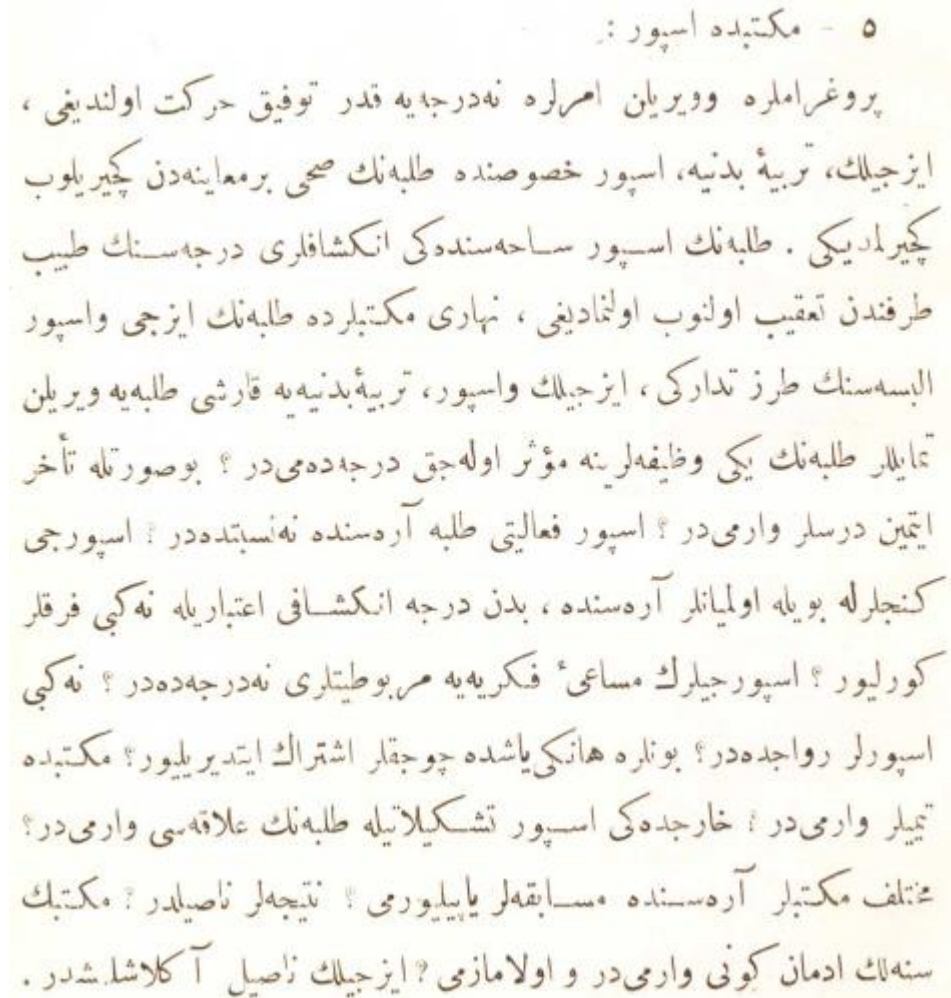 ٥ - مكتبده اسپور :
پروغراملره وويريلن امرلره نه‌درجه‌يه قدر توفيق حركت اولنديغى ،
ايزجيلك، تربيۀ بدنيه، اسپور خصوصنده طلبه‌نك صحى برمعاينه‌دن كچيريلوب
كچيرلمديكى . طلبه‌نك اسپور ساحه‌سنده‌كى انكشافلرى درجه‌سنك طبيب
طرفندن تعقيب اولنوب اولنماديغى ، نهارى مكتبلرده طلبه‌نك ايزجى واسپور
البسه‌سنك طرز تداركى ، ايزجيلك واسپور، تربيۀ بدنيه‌يه قارشى طلبه‌يه ويريلن
تمايللر طلبه‌نك يكى وظيفه‌لرينه مؤثر اوله‌جق درجه‌ده‌مى‌در ؟ بوصورتله تأخر
ايتمين درسلر وارمى‌در ؟ اسپور فعاليتى طلبه آره‌سنده نه‌نسبتده‌در ؟ اسپورجى
كنجلرله بويله اولميانلر آره‌سنده ، بدن درجه انكشافى اعتباريله نه‌كبى فرقلر
كورليور ؟ اسپورجيلرك مساعئ فكريه‌يه مربوطيتلرى نه‌درجه‌ده‌در ؟ نه‌كبى
اسپورلر رواجده‌در؟ بونلره هانكى ياشده چوجقلر اشتراك ايتديريليور؟ مكتبده
تيميلر وارمى‌در ؟ خارجده‌كى اسپور تشكيلاتيله طلبه‌نك علاقه‌سى وارمى‌در؟
مختلف مكتبلر آره‌سنده مسابقه‌لر ياپيليورمى ؟ نتيجه‌لر ناصيلدر ؟ مكتبك
سنه‌لك ادمان كونى وارمى‌در و اولامازمى ؟ ايزجيلك ناصيل آكلاشلمشدر .